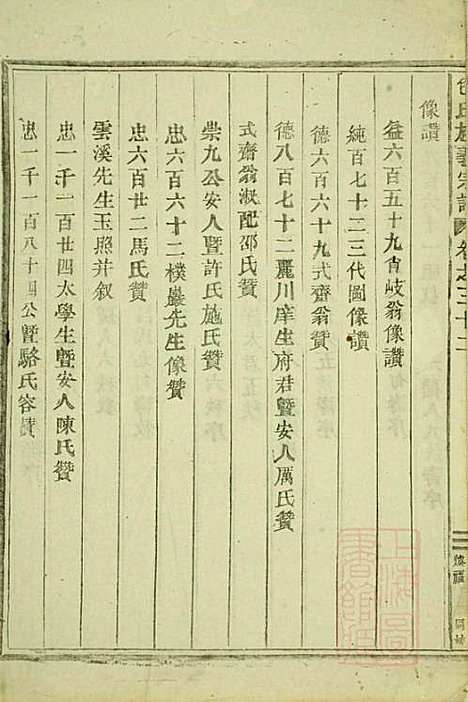 像讚
益六百五十九肯岐翁像讚
純百七十二三代圖像讚
德六百六十九式齋翁贊
德八百七十二麗川庠生府君暨安人厲氏贊
式齋翁淑配邵氏贊
崇九公安人暨許氏施氏贊
忠六百六十二樸巖先生像贊
忠六百廿二馬氏贊
雲溪先生玉照并叙
忠一千一百廿四太學生暨安人陳氏贊
忠一千一百八十四公暨駱氏容
上海圖書館藏